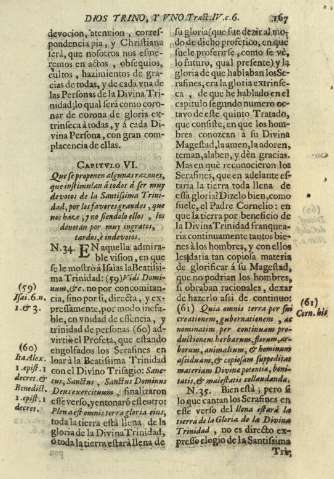 DIOS TRINO, Y VNO. Tract. IV. c. 6. 167
devocion, atencion, corres-
pondencia pia, y Christiana
será, que nosotros nos esme-
remos en actos, obsequios,
cultos, hazimientos de gra-
cias de todas, y de cada vna de
las Personas de la Divina Tri-
nidad; lo qual será como coro-
nar de corona de gloria ex-
trinseca à todas, y à cada Di-
vina Persona, con gran com-
placencia de ellas.
CAPITVLO VI.
Que se proponen algunas razones,
que instimulan à todos à ser muy
devotos de la Santissima Trini-
dad, por los favores grandes, que
nos haze; y no siendolo ellos, los
denotan por muy ingratos,
tardos, è indevotos.
N. 34. EN aquella admira-
ble vision, en que
se le mostrarà Isaias la Beatissi-
ma Trinidad: (59) Vidi Domi-
num, &c. no por concomitan-
cia, sino por si, directa, y ex-
pressamente, por modo inefa-
ble, en vnidad de essencia, y
trinidad de personas (60) ad-
virtiò el Profeta, que estando
engolfados los Serafines en
loar à la Beatissima Trinidad
con el Divino Trisagio: Sanc-
tus, Sanctus, Sanctus Dominus
Deus exercituum, finalizaron
esse verso, y entonarò este otro:
Plena est omnis terra gloria eius,
toda la tierra està llena de la
gloria de la Divina Trinidad,
ò toda la tierra estarà llena de
(59)
Isai. 6. n.
1. & 3.
(60)
1 apist. 1
decret. &
Benedict.
1 apist. 1
decret.
su gloria (que fue dezir al mo-
do de dicho profetico, en que
suele proferirse, como se vè,
lo futuro, qual presente) y la
gloria de que hablaban los Se-
rafines, era la gloria extrinse-
ca, de que he hablado en el
capitulo segundo numero oc-
tavo de este quinto Tratado,
que consiste, en que los hom-
bres conozcan à su Divina
Magestad, la amen, la adoren,
teman, alaben, y dèn gracias.
Mas en què reconocieron los
Serafines, que en adelante es-
taria la tierra toda llena de
essa gloria? Dizelo bien, como
suele, el Padre Cornelio: en
que la tierra por beneficio de
la Divina Trinidad franquea-
ria continuamente tantos bie-
nes à los hombres, y con ellos
les daria tan copiosa materia
de glorificar à su Magestad,
que no podrian los hombres,
si obraban racionales, dexar
de hazerlo assi de continuo:
(61) Quia omnis terra per sui
creationem, gubernationem, ac
nominatim per continuam pro-
ductionem herbarum, florum, ar-
borum, animalium, & hominum
assiduam, & copiosam suppeditat
materiam Divina potentia, boni-
tatis, & maiestatis collaudanda.
N. 35. Bien està; pero si
lo que cantan los Serafines en
esse verso del llena estarà la
tierra de la Gloria de la Divina
Trinidad, no es directo ex-
presso elogio de la Santissima
Tri-
(61)
Corn. hic